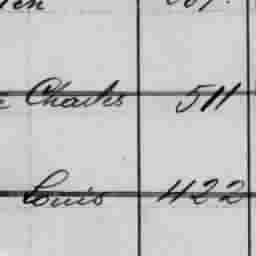 Charles 511
Louis 422